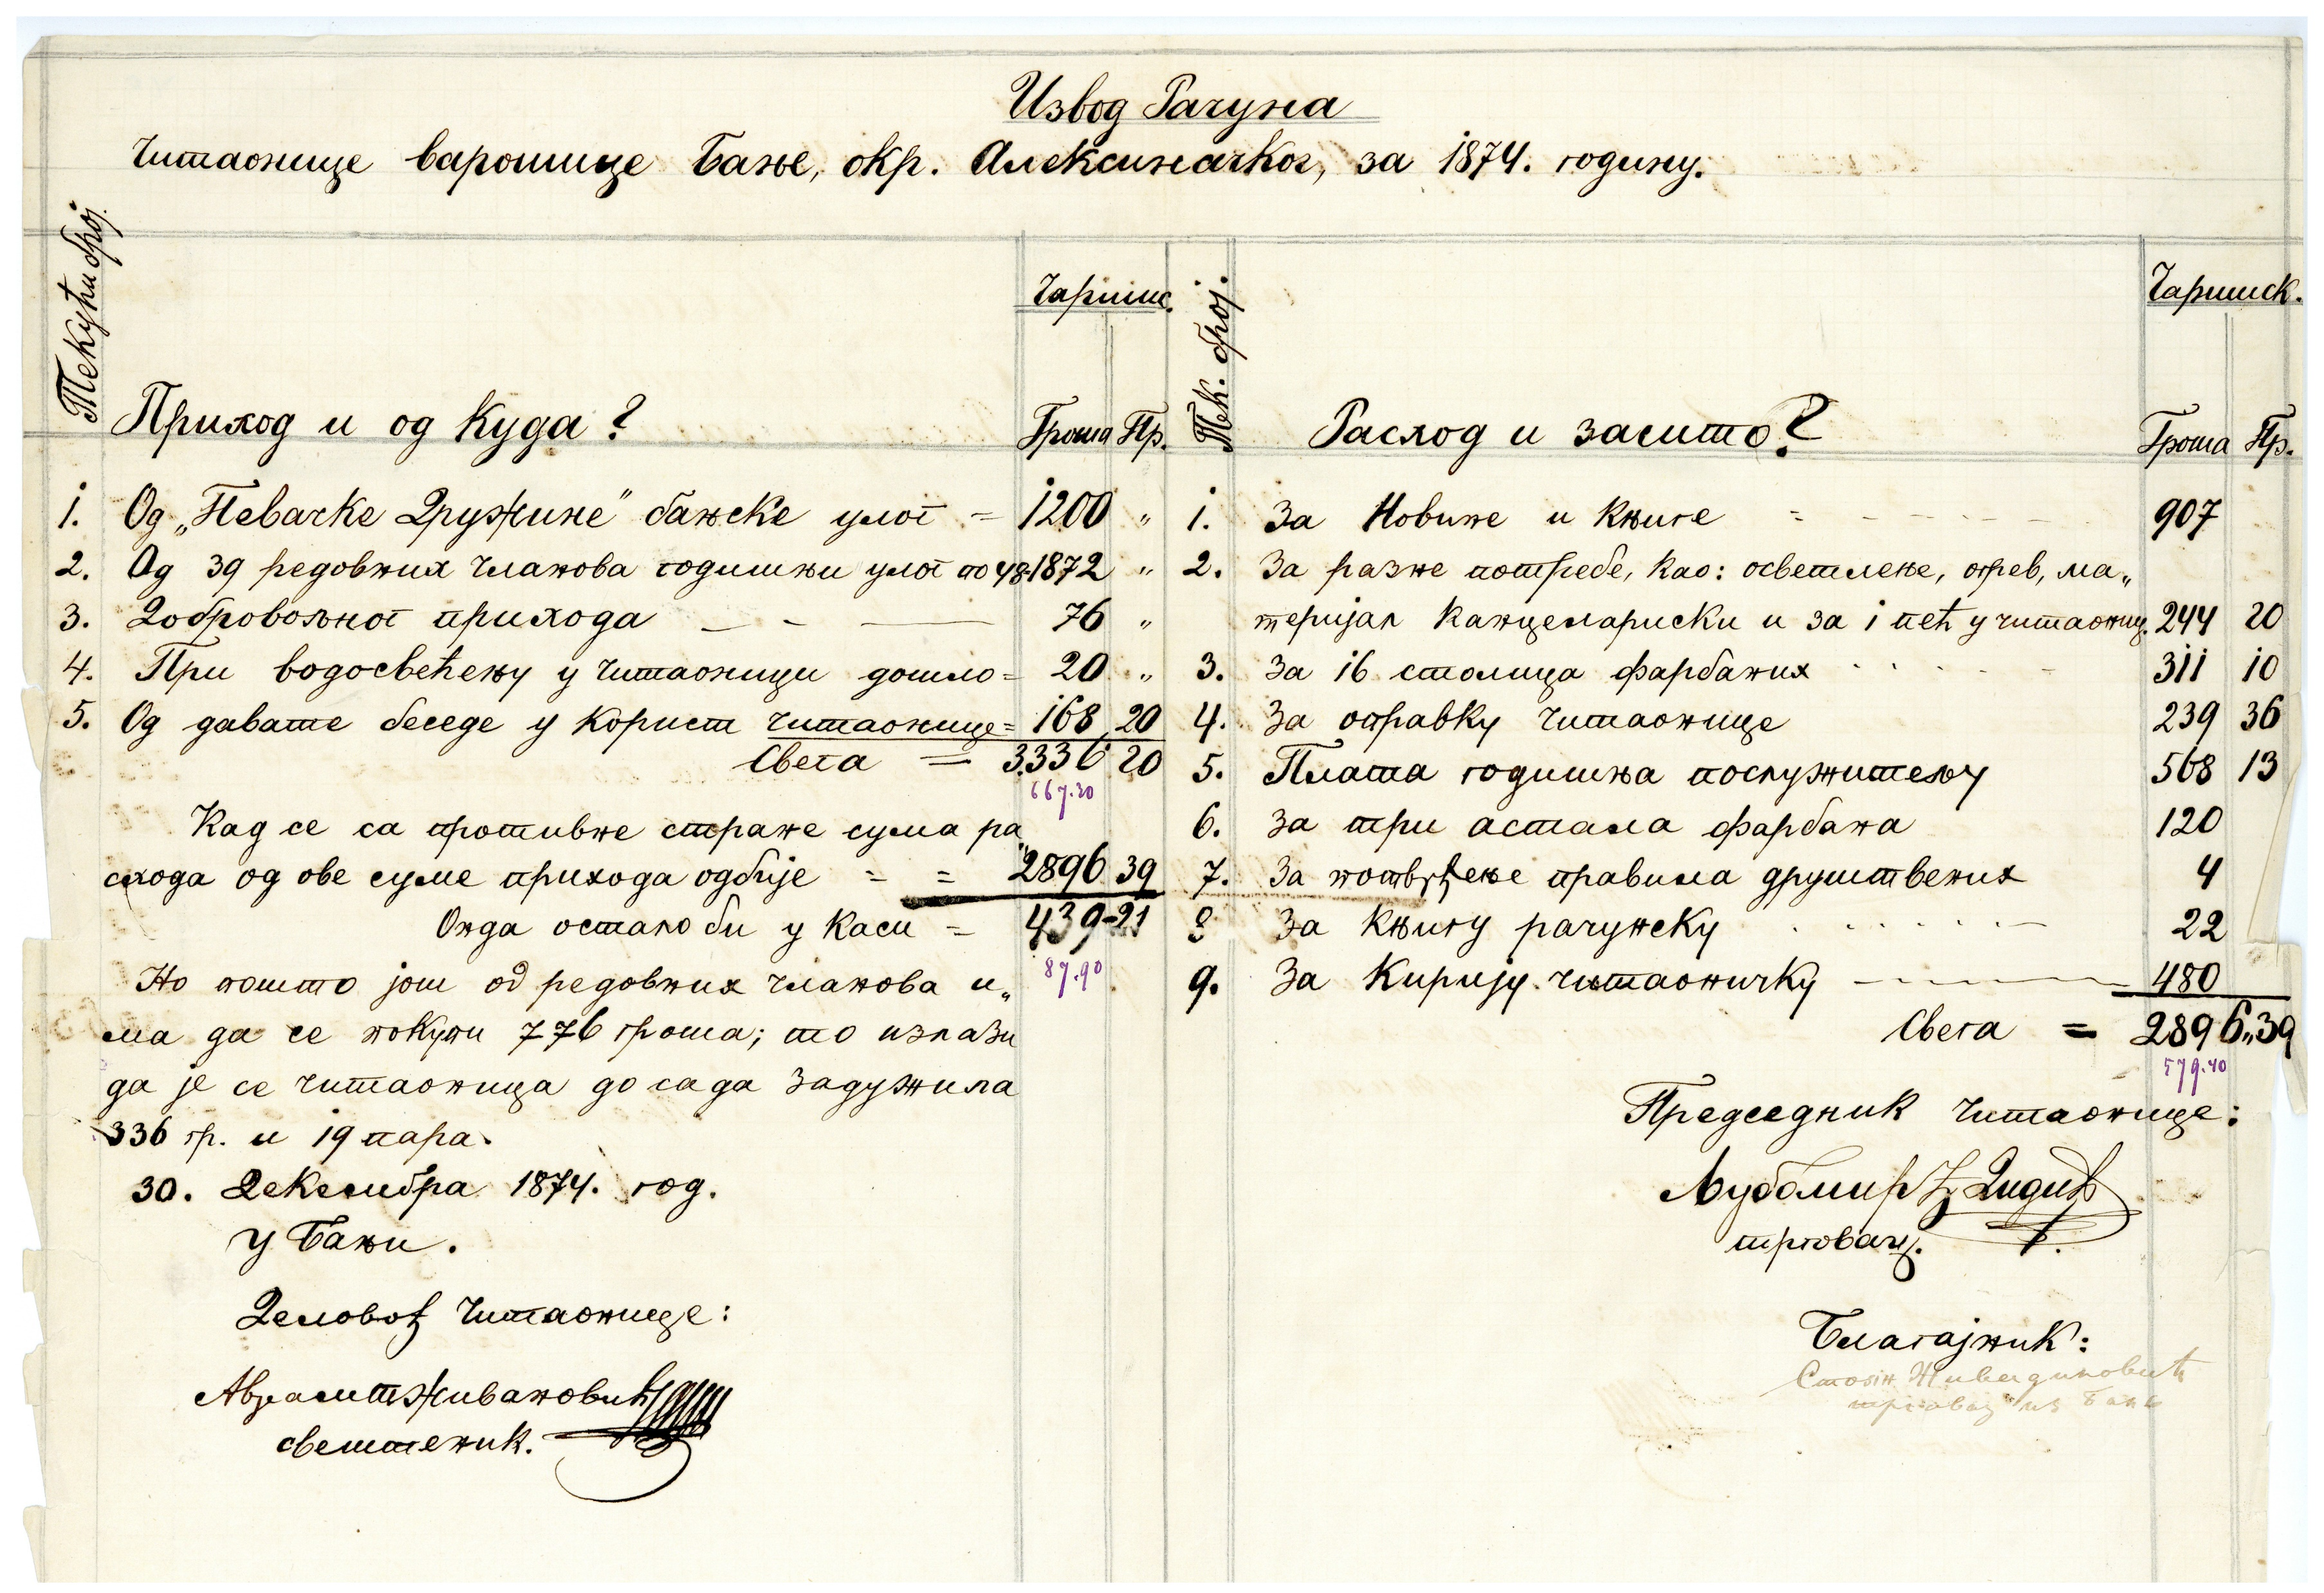 Извод Рачуна
Читаонице варошице Бање, окр. Алексиначког, за 1874. годину.
Текући број.
Приход и од куда?
Чаршис.
Гроша Пр.
1. Од „Певачке Дружине" бањске улог = 1200 „
2. Од 39 редовних чланова годишњи улог по 48 1872 „
3. Добровољног прихода 76 „
4. При водосвећењу у читаоници дошло = 20 „
5. Од давате беседе у корист читаонице = 168 20
Свега = 3.336 20
667.30
Кад се са противне стране сума ра„
схода од ове суме прихода одбије = = 2896 39
Онда остало би у каси = 439-21
87.90
Но пошто још од редовних чланова и„
ма да се покупи 776 гроша; то излази
да је се читаоница до сада задужила
336 гр. и 19 пара.
30. Декемибра 1874. год.
у Бањи.
Деловођ Читаонице:
свештеник.
Тек. број.
Расход и зашто?
Чаршиск.
Гроша Пр.
1. За Новине и Књиге = 907
2. За разне потребе, као: осветлење, огрев, ма„
теријал канцелариски и за 1 пећ у читаониц. 244 20
3. За 16 столица фарбаних 311 10
4. За оправку читаонице 239 36
5. Плата годишња послужитељу 568 13
6. За три астала фарбана 120
7. За потврђење правила друштвених 4
8 За Књигу рачунску 22
9. За Кирију читаоничку 480
Свега = 2896„39
579.40
Председник Читаонице:
Љубомир Ђ. Дидић
трговац.
Благајник:
трговац из Бање